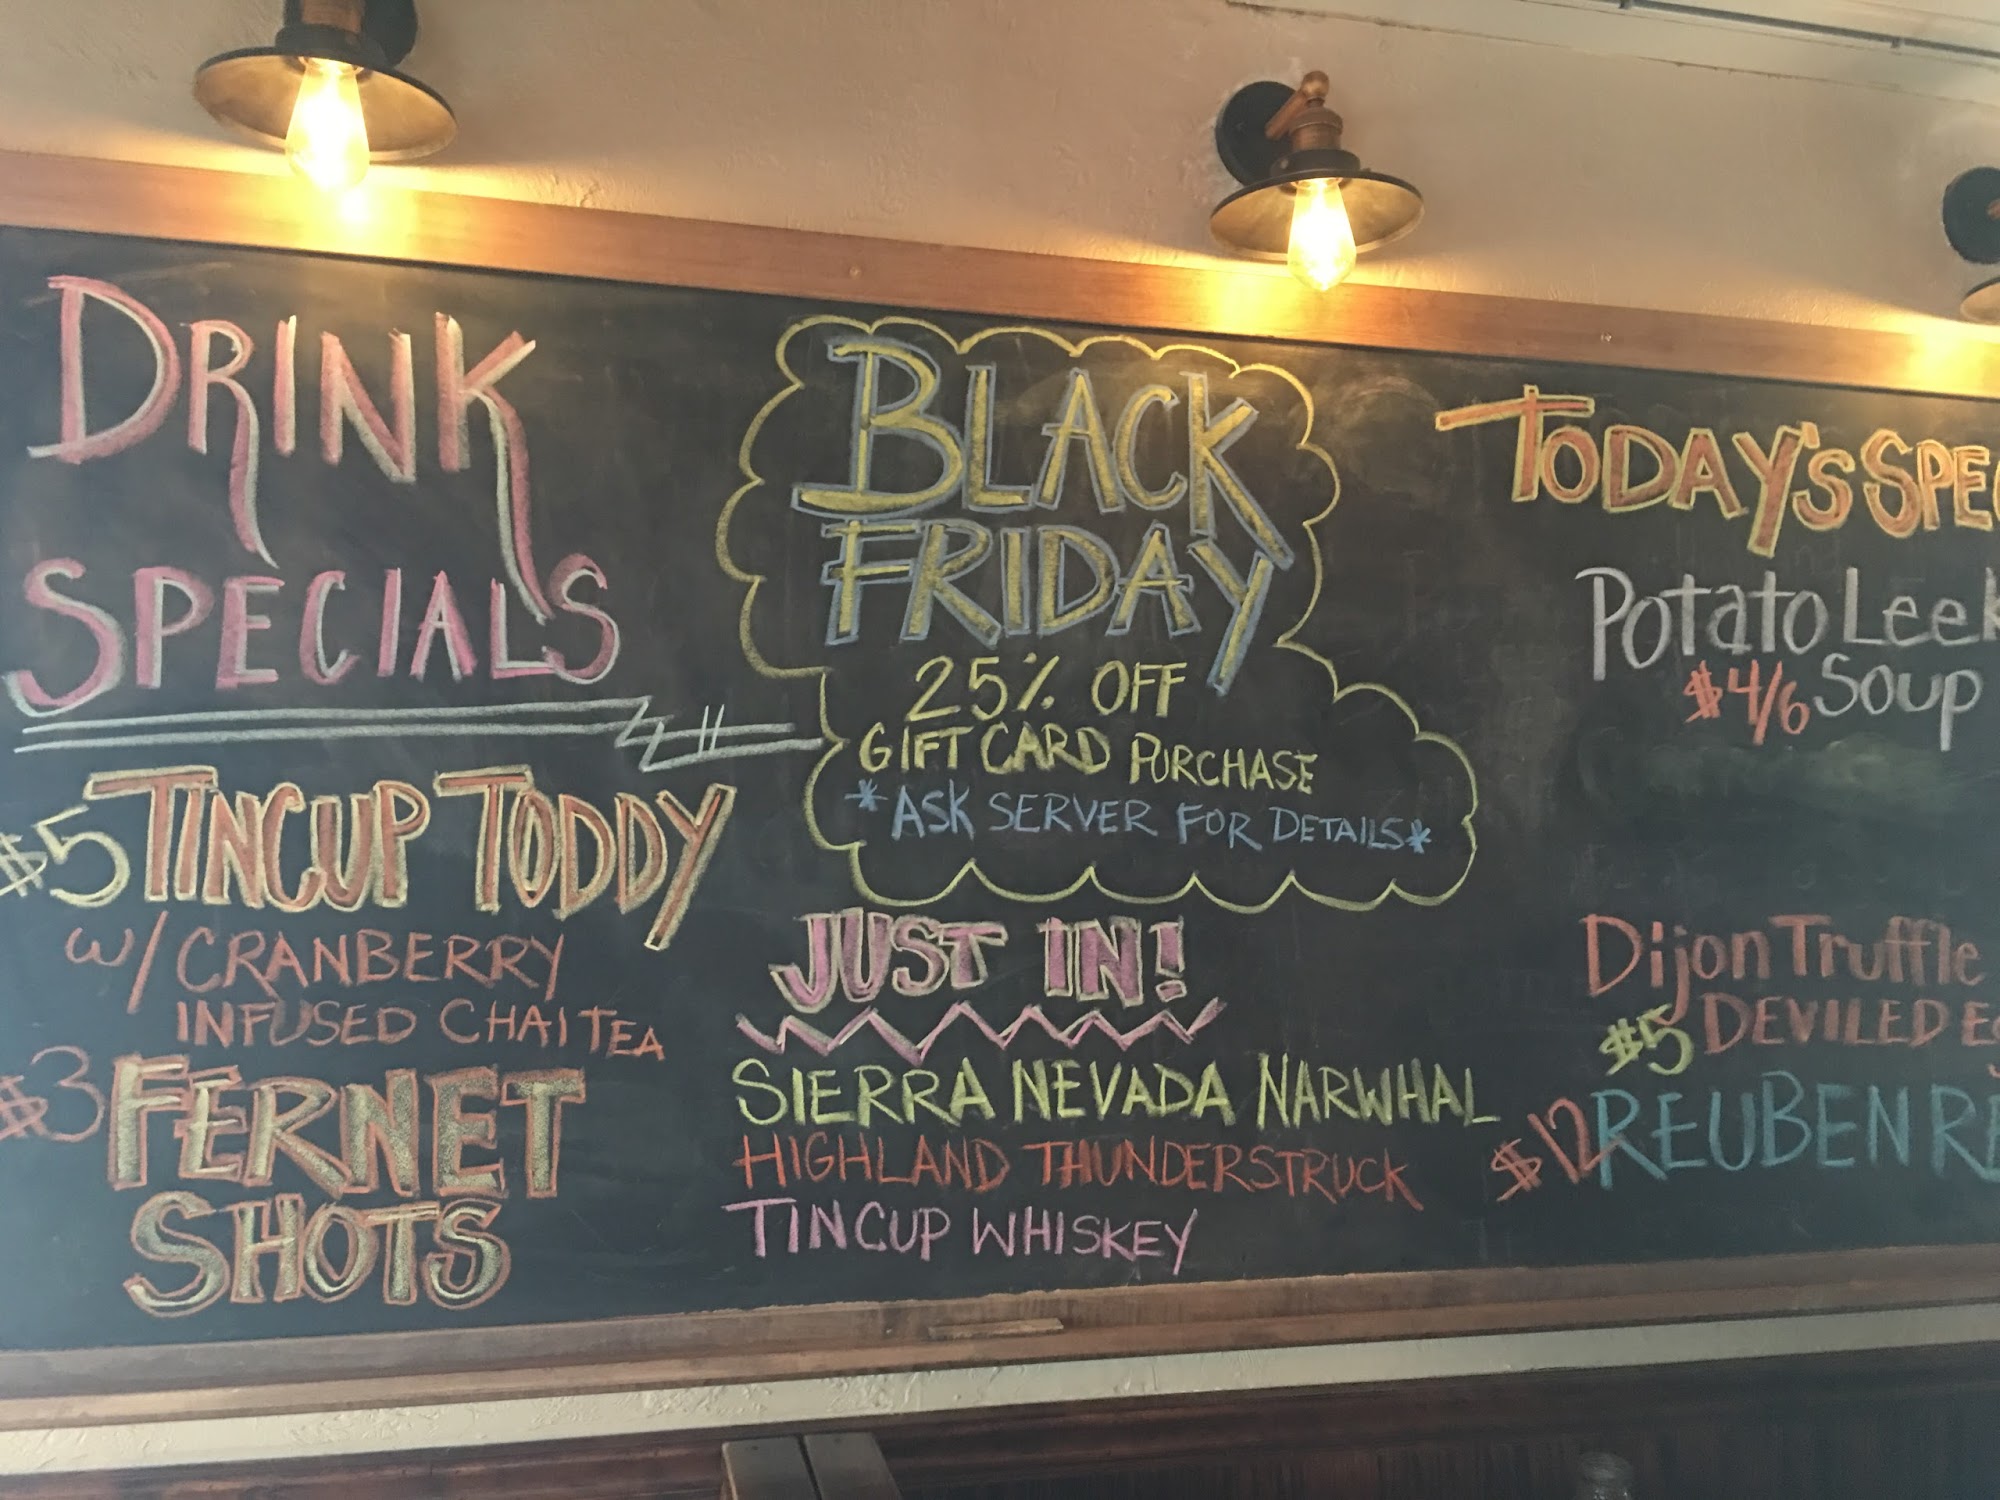 DRINK
SPECIALS
$5 TINCUP TODDY
w/ CRANBERRY
INFUSED CHAI TEA
$3 FERNET
SHOTS
BLACK
FRIDAY
25% OFF
GIFT CARD PURCHASE
*ASK SERVER FOR DETAILS*
JUST IN!
SIERRA NEVADA NARWHAL
HIGHLAND THUNDERSTRUCK
TINCUP WHISKEY
TODAY'S SPEC
Potato Leek
$4/6 Soup
Dijon Truffle
$5 DEVILED
$12 REUBEN